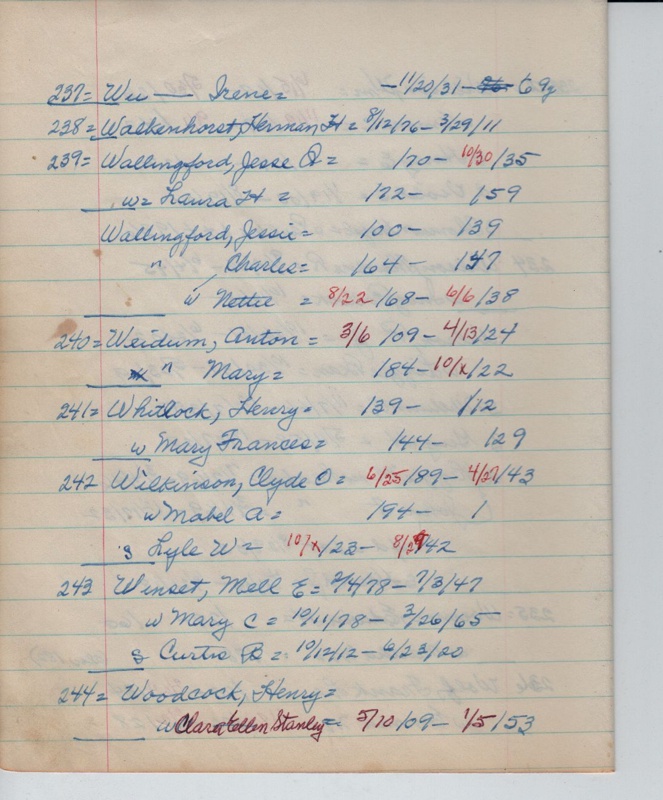 237= Wu — Irene= — 11/20/31 — 6 9y
238= Walkenhorst, Herman H = 8/12/76 — 3/29/11
239= Wallingford, Jesse A = /70 — 10/30/35
w= Laura H = 172 — 159
Wallingford, Jessie = 100 — 139
" Charles= 164 — 147
w Nettie = 8/22/68 — 6/6/38
240= Weidum, Anton = 3/6/09 — 4/13/24
" Mary= 184 — 10/x/22
241= Whitlock, Henry= 139 — /12
w Mary Frances= 144 — 129
242 Wilkinson, Clyde O = 6/25/89 — 4/27/43
w Mabel A = 194 — 1
s Lyle W= 10/x/23 — 42
243 Winset, Mell E = 2/4/78 — 7/3/47
w Mary C = 10/11/78 — 3/26/65
s Curtis B = 10/12/12 — 6/23/20
244= Woodcock, Henry=
w Clara Ellen Stanley = 5/10/09 — 1/5/53